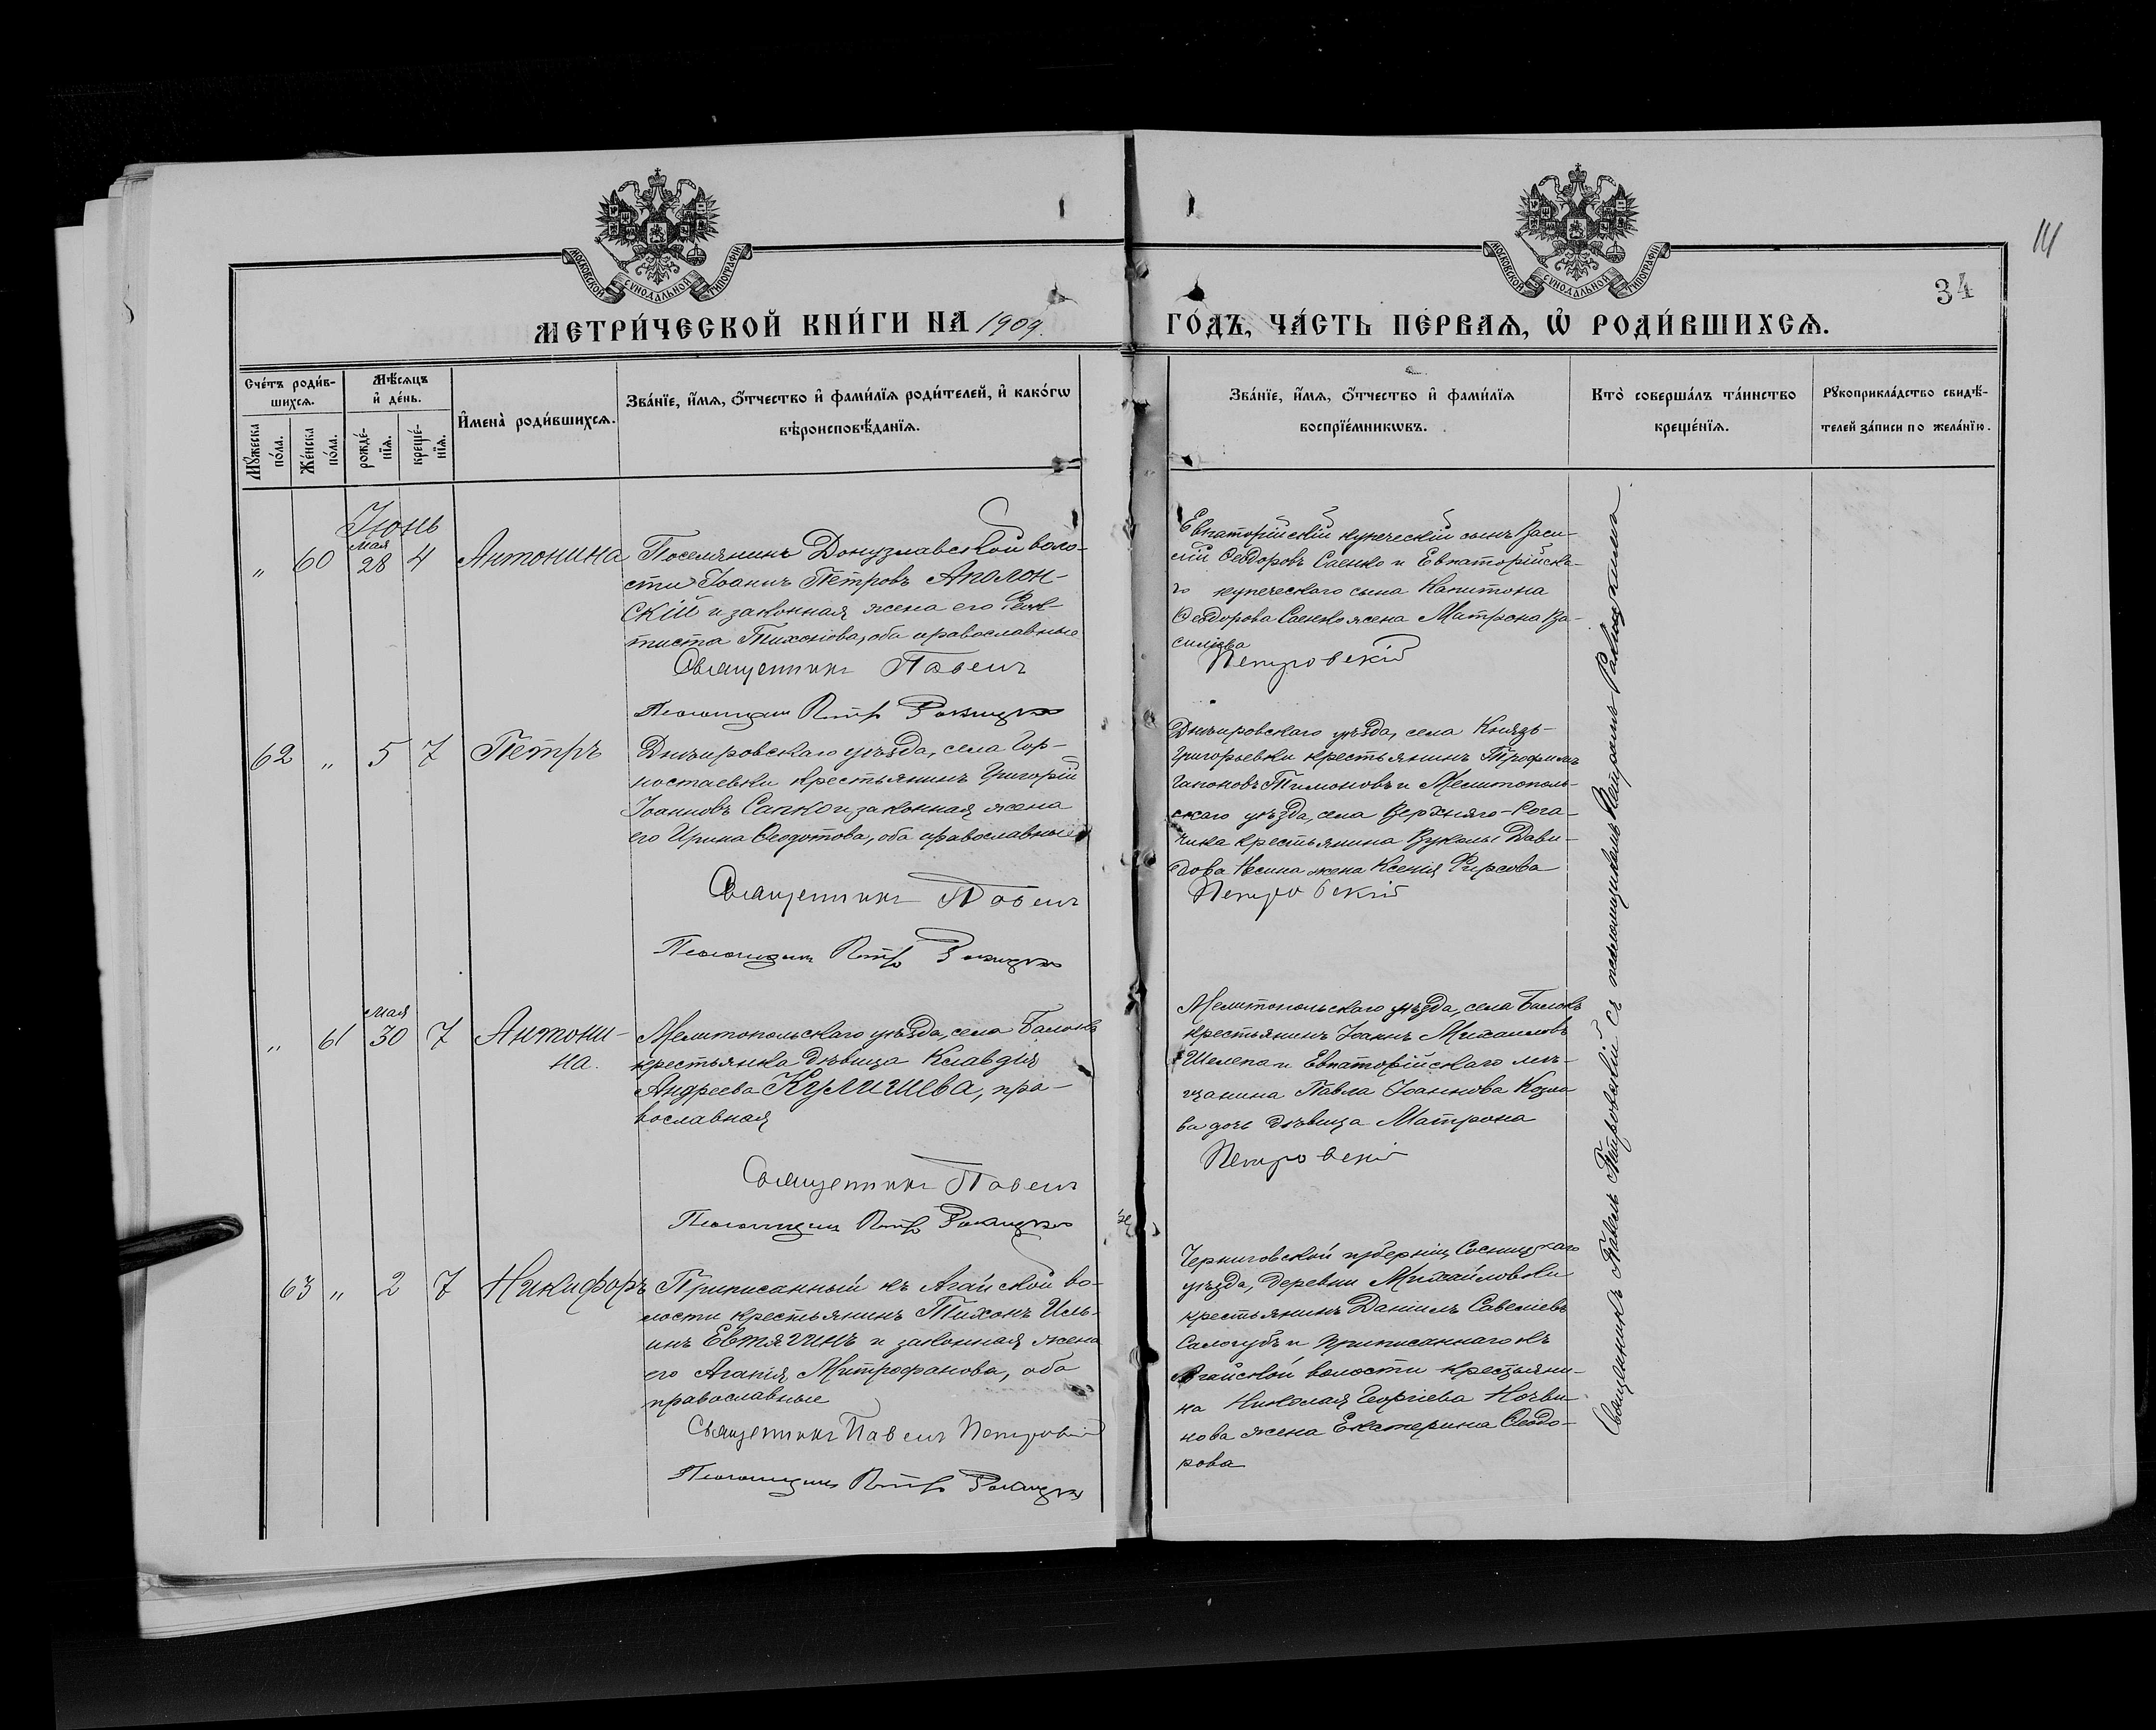 111
34
МОСКОВСКОЙ СУНОДАЛЬНОЙ ТИПОГРАФІИ
МОСКОВСКОЙ СУНОДАЛЬНОЙ ТИПОГРАФІИ
МЕТРИ́ЧЕСКОЙ КНИ́ГИ НА 1909.
ГО́ДЪ, ЧА́СТЬ ПЕ́РВАѦ, Ѡ҆ РОДИ́ВШИХСѦ.
Сче́тъ роди́в-
шихсѧ.
Мꙋ́жеска по́ла.
Же́нска по́ла.
Мѣ́сѧцъ
и҆ де́нь.
рожде́-
нїѧ.
креще́-
нїѧ.
И҆мена̀ роди́вшихсѧ.
Зва́нїе, и҆́мѧ, ѻ҆́тчество и҆ фами́лїѧ роди́телей, и҆ како́гѡ
вѣроисповѣ́данїѧ.
Зва́нїе, и҆́мѧ, ѻ҆́тчество и҆ фами́лїѧ
воспрїе́мникѡвъ.
Кто̀ соверша́лъ та́инство
креще́нїѧ.
Рꙋкоприкла́дство свидѣ́-
телей за́писи по жела́нїю.
Іюнь
" 60 мая 28 4 Антонина
Поселянинъ Донузлавской воло-
сти Іоаннъ Петровъ Аполон-
скій и законная жена его Ѳеок-
тиста Тихонова, оба православные
Священникъ Павелъ
Псаломщикъ Петръ Ракицкій
Евпаторійскій купеческій сынъ Васи-
лій Ѳеодоровъ Саенко и Евпаторійска-
го купеческаго сына Капитона
Ѳеодорова Саенко жена Матрона Ва-
силіева
Петровскій
62 " 5 7 Петръ
Днѣпровскаго уѣзда, села Гор-
ностаевки крестьянинъ Григорій
Іоанновъ Сапко и законная жена
его Ирина Ѳеодотова, оба православные
Священникъ Павелъ
Псаломщикъ Петръ Ракицкій
Днѣпровскаго уѣзда, села Князь-
Григорьевки крестьянинъ Трофимъ
Гапоновъ Тимоновъ и Мелитополь-
скаго уѣзда, села Верхняго-Рога-
чика крестьянина Вуколы Дави-
дова жена Ксенія Фирсова
Петровскій
" 61 мая 30 7 Антони-
на.
Мелитопольскаго уѣзда, села Балокъ
крестьянка дѣвица Клавдія
Андреева Кулишева, пра-
вославная
Священникъ Павелъ
Псаломщикъ Петръ Ракицкій
Мелитопольскаго уѣзда, села Балокъ
крестьянинъ Іоаннъ Михаиловъ
Шелепа и Евпаторійскаго мѣ-
щанина Павла Іоаннова Козло
ва дочь дѣвица Матрона
Петровскій
63 " 2 7 Никифоръ
Приписанный къ Агайской во-
лости крестьянинъ Тихонъ Иль-
инъ Евтягинъ и законная жена
его Агапія Митрофанова, оба
православные
Священникъ Павелъ Петровскій
Псаломщикъ Петръ Ракицкій
Черниговской губерніи Сосницкаго
уѣзда, деревни Михайловки
крестьянинъ Даніилъ Савеліевъ
Салогубъ и приписаннаго къ
Агайской волости крестьяни-
на Николая Георгіева Ночви-
нова жена Екатерина Ѳеодо-
рова
Священникъ Павелъ Петровскій съ псаломщикомъ Петромъ Ракицкимъ.